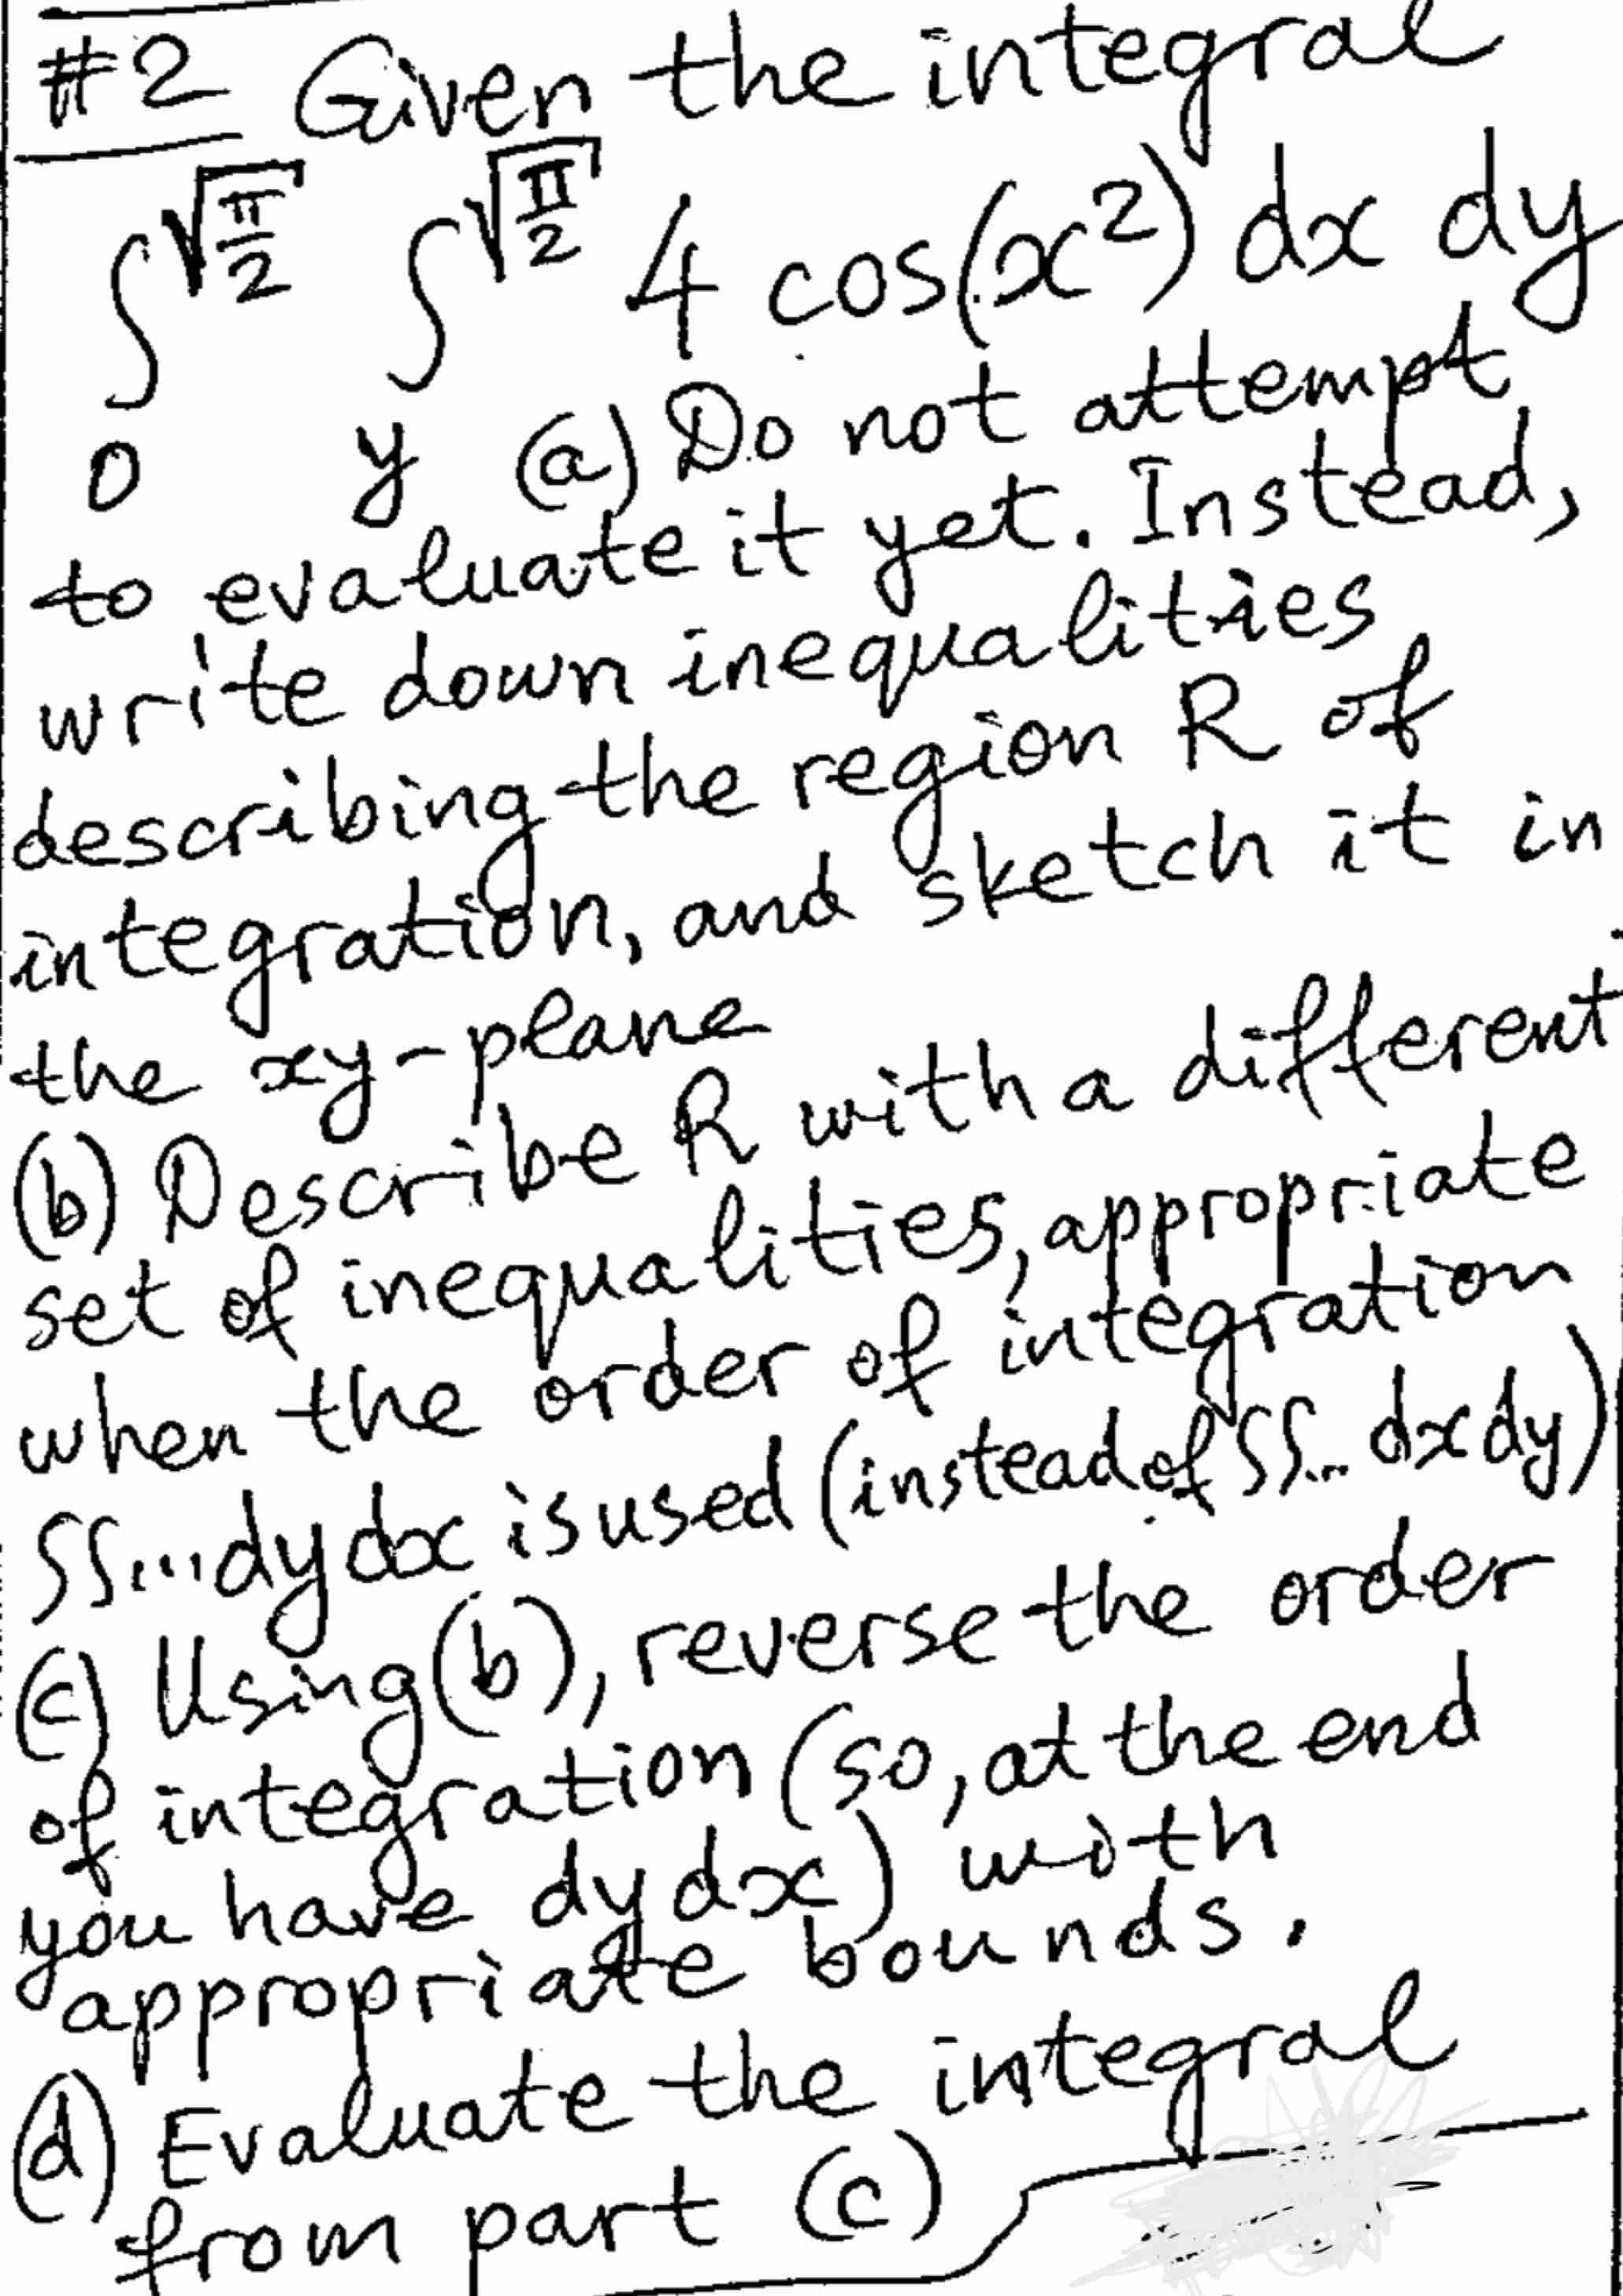 #2 Given the integral
∫₀^√(π/2) ∫_y^√(π/2) 4 cos(x²) dx dy
(a) Do not attempt
to evaluate it yet. Instead,
write down inequalities
describing the region R of
integration, and sketch it in
the xy-plane
(b) Describe R with a different
set of inequalities, appropriate
when the order of integration
∫∫...dy dx is used (instead of ∫∫... dx dy)
(c) Using (b), reverse the order
of integration (so, at the end
you have dy dx) with
appropriate bounds.
(d) Evaluate the integral
from part (c)